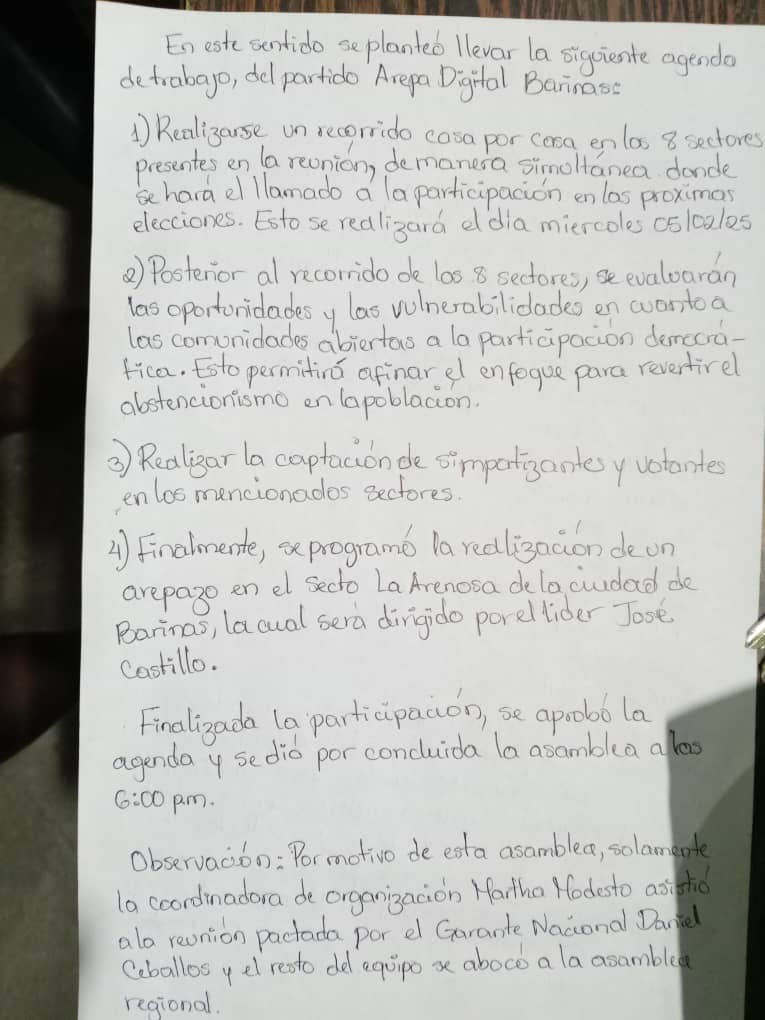 En este sentido se planteó llevar la siguiente agenda
de trabajo, del partido Arepa Digital Barinas:
1) Realizarse un recorrido casa por casa en los 8 sectores
presentes en la reunión, de manera simoltánea donde
se hará el llamado a la participación en las proximas
elecciones. Esto se realizará el día miercoles 05/02/25
2) Posterior al recorrido de los 8 sectores, se evaluarán
las oportunidades y las vulnerabilidades en cuanto a
las comunidades abiertas a la participación democrá-
tica. Esto permitirá afinar el enfoque para revertir el
abstencionismo en la población.
3) Realizar la captación de simpatizantes y votantes
en los mencionados sectores.
4) Finalmente, se programó la realización de un
arepazo en el Secto La Arenosa de la ciudad de
Barinas, la cual será dirigido por el lider José
Castillo.
Finalizada la participación, se aprobó la
agenda y se dió por concluida la asamblea a las
6:00 pm.
Observación: Por motivo de esta asamblea, solamente
la coordinadora de organización Martha Modesto asistió
a la reunión pactada por el Garante Nacional Daniel
Ceballos y el resto del equipo se abocó a la asamblea
regional.